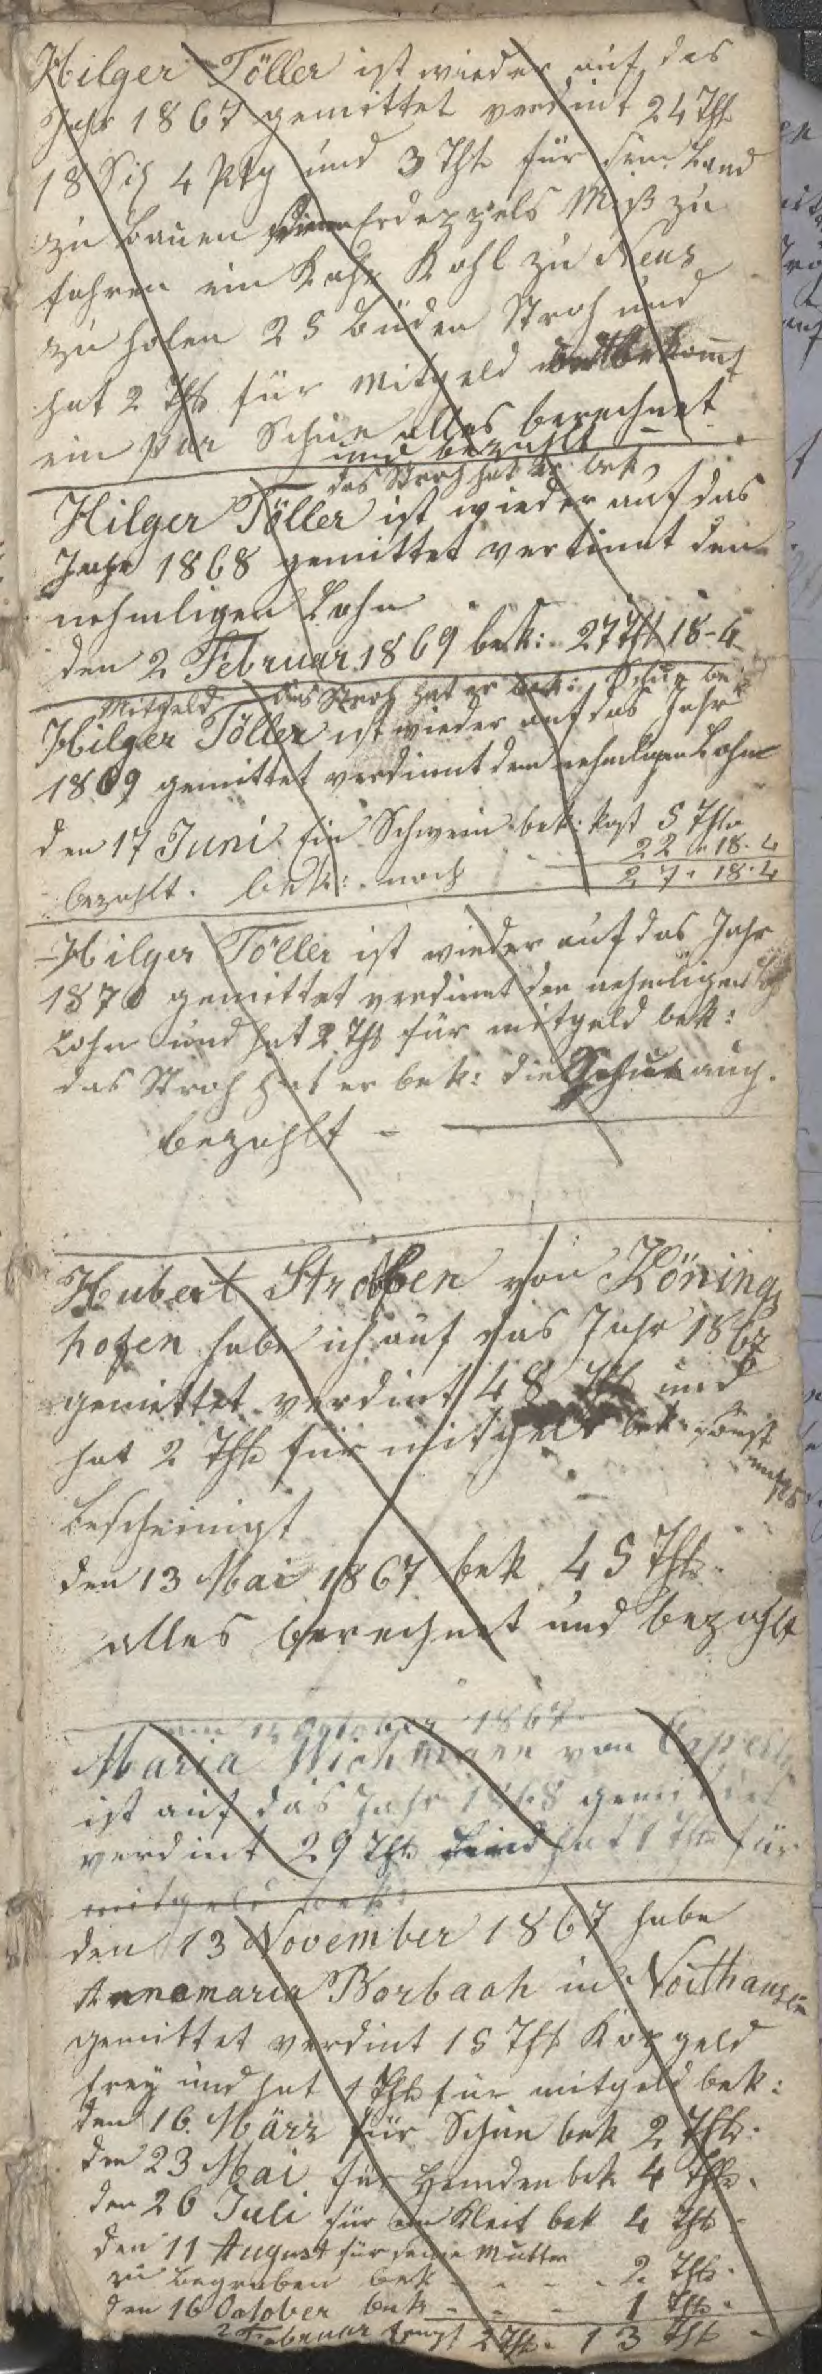 Hilger Töller ist wieder auf das
Jahr 1867 gemittet verdint 24 Thl
18 Sil 4 Pfg und 3 Thl für sein Land
zu bauen Erdeppels Miß zu
fahren ein Kahr Kohl zu Neus
zu holen 25 büden Stroh und
hat 2 Thl für Mitgeld bekomt
ein par Schue alles berechnet
und bezahlt
das Stroh hat er bek
Hilger Töller ist wieder auf das
Jahr 1868 gemittet verdinnt den
nehmligen Lohn
den 2 Februar 1869 bek: 27 Thl 18-4
Mitgeld das Stroh hat er bek: Schue bek
Hilger Töller ist wieder auf das Jahr
1869 gemittet verdinnt den nehmligen Lohn
den 17 Juni Ein Schwein bek: kost 5 Thlr
22 " 18-4
bezahlt. bek: noch 27 " 18-4
Hilger Töller ist wieder auf das Jahr
1870 gemittet verdinnt den nehmligen
Lohn und hat 2 Thl für mitgeld bek:
das Stroh hat er bek: die Schue auch.
bezahlt -
Hubert von Könings
hofen habe ich auf das Jahr 1867
gemittet verdint 48 Thl und
hat 2 Thl für mitgeld bek sonst
nichts
bescheinigt
den 13 Mai 1867 bek 45 Thl
alles berechnet und bezahlt
den 15 October 1867
Maria Wichmann von
ist auf das Jahr 1868 gemittet
verdint 29 Thl und hat 1 Thl für
mitgeld bek:
den 13 November 1867 habe
Annamaria Borbach in Noithausen
gemittet verdint 15 Thl Kopgeld
frey und hat 1 Thl für mitgeld bek:
den 16. März für Schue bek 2 Thl:
den 23 Mai für Hemden bek 4 Thl.
den 26 Juli für ein Kleit bek 4 Thl -
den 11 August für seine Mutter
zu begraben bek - - - 2 Thl.
den 16 October bek - - - 1 Thl.
2 Februar 2 Thl. 13 Thl